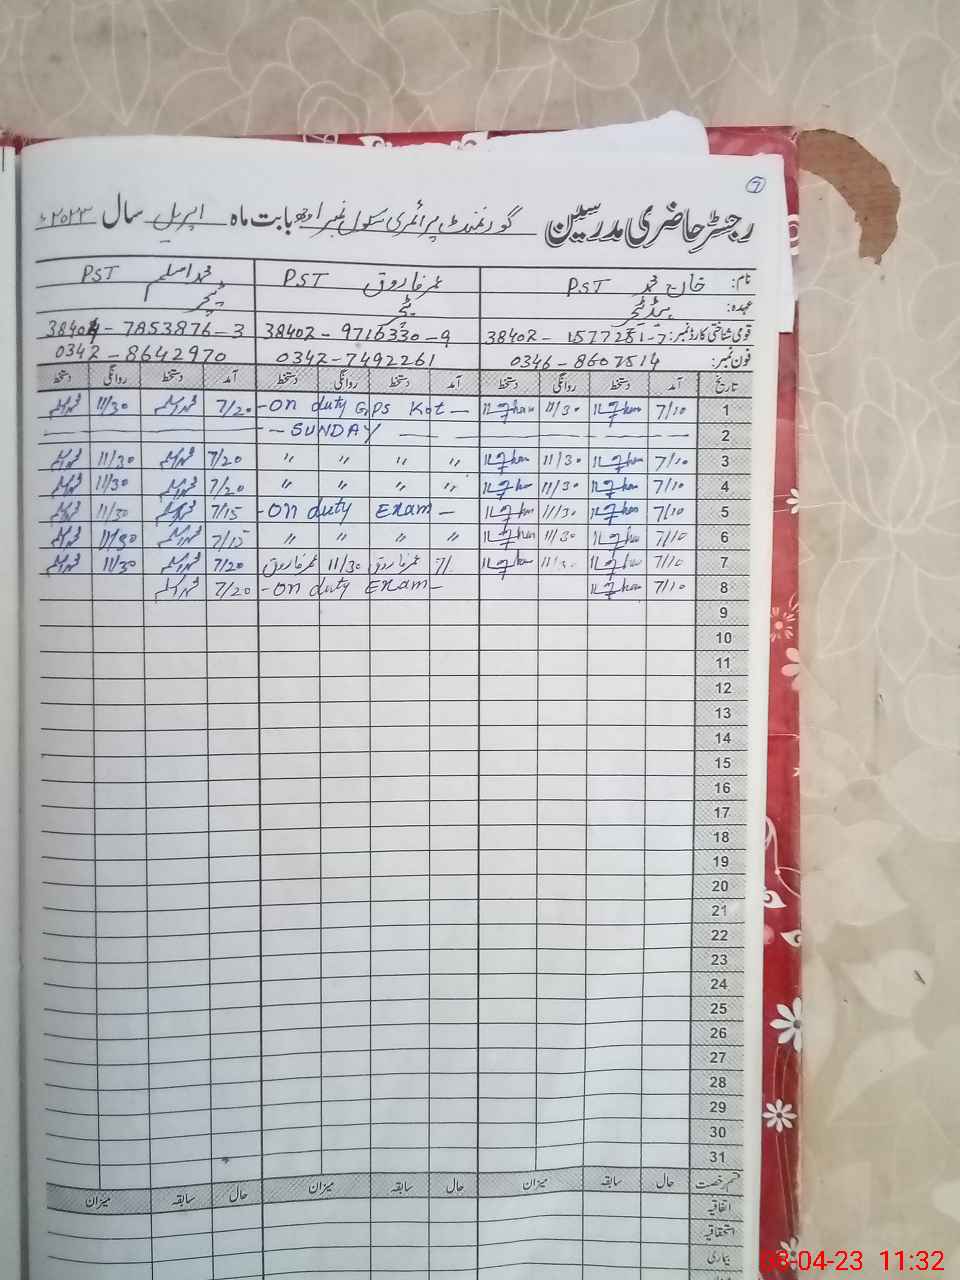 7
رجسٹر حاضری مدرسین گورنمنٹ پرائمری سکول نمبر ا بابت ماہ اپریل سال ۲۰۲۳ء
نام: خان محمد PST عمر فاروق PST محمد اسلم PST
عہدہ: ہیڈ ٹیچر ٹیچر ٹیچر
قومی شناختی کارڈ نمبر: 38402-1577251-7 38402-9716330-9 38404-7853876-3
فون نمبر: 0346-8607514 0342-7492261 0342-8642970
تاریخ آمد دستخط روانگی دستخط آمد دستخط روانگی دستخط آمد دستخط روانگی دستخط
1 7/10 11/30 -On duty GPS Kot- 7/20 محمد اسلم 11/30 محمد اسلم
2 -SUNDAY-
3 7/10 11/30 " " " " 7/20 محمد اسلم 11/30 محمد اسلم
4 7/10 11/30 " " " " 7/20 محمد اسلم 11/30 محمد اسلم
5 7/10 11/30 -On duty Exam- 7/15 محمد اسلم 11/30 محمد اسلم
6 7/10 11/30 " " " " 7/15 محمد اسلم 11/30 محمد اسلم
7 7/10 11/30 7/ عمر فاروق 11/30 عمر فاروق 7/20 محمد اسلم 11/30 محمد اسلم
8 7/10 -On duty Exam- 7/20 محمد اسلم
9
10
11
12
13
14
15
16
17
18
19
20
21
22
23
24
25
26
27
28
29
30
31
قسم رخصت حال سابقہ میزان حال سابقہ میزان حال سابقہ میزان
اتفاقیہ
استحقاقیہ
بیماری
08-04-23 11:32